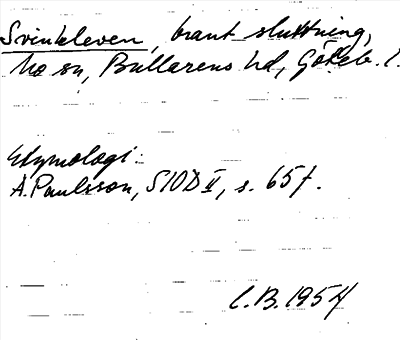 Svinkleven, brant sluttning,
Mo sn, Bullarens hd, Göteb. l.
Etymologi:
A. Paulsson, SIOD II, s. 65 f.
C.B. 1954